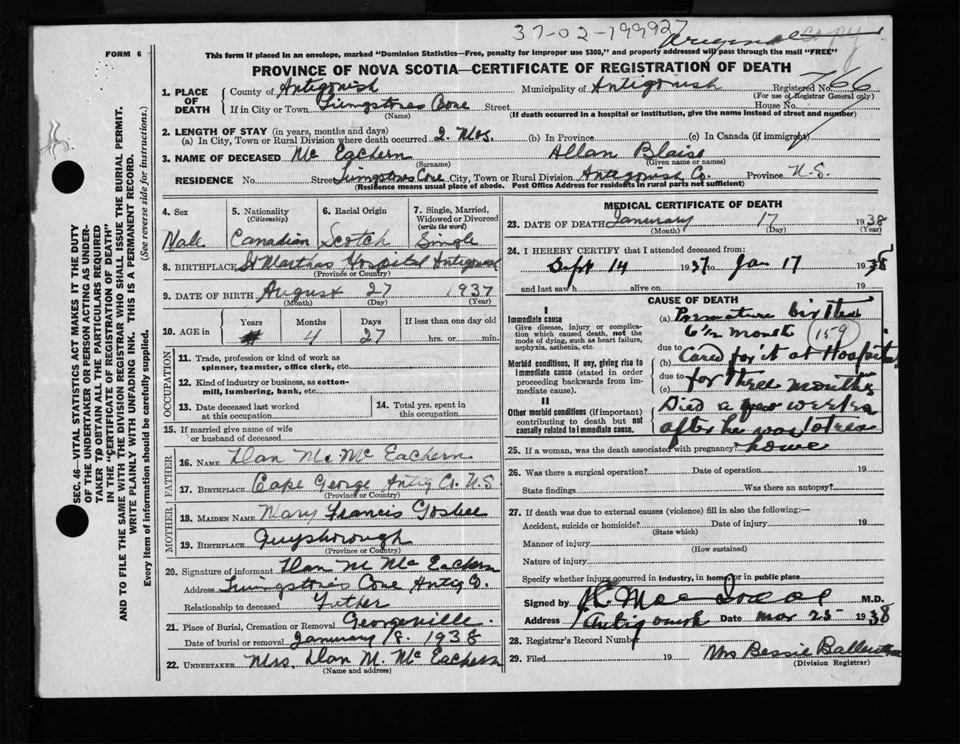 37-02-199927
Original copy
FORM 6
This form if placed in an envelope, marked "Dominion Statistics—Free, penalty for improper use $300," and properly addressed will pass through the mail "FREE"
PROVINCE OF NOVA SCOTIA—CERTIFICATE OF REGISTRATION OF DEATH
1. PLACE OF DEATH County of Antigonish Municipality of Antigonish Registered No. 766
(For use of Registrar General only)
If in City or Town Livingstones Cove Street House No.
(Name) (If death occurred in a hospital or institution, give the name instead of street and number)
2. LENGTH OF STAY (in years, months and days)
(a) In City, Town or Rural Division where death occurred 2. Mos. (b) In Province (c) In Canada (if immigrant)
3. NAME OF DECEASED Mc Eachern Allan Blaise
(Surname) (Given name or names)
RESIDENCE No. Street Livingstones Cove City, Town or Rural Division Antigonish Co. Province N.S.
(Residence means usual place of abode. Post Office Address for residents in rural parts not sufficient)
4. Sex Male
5. Nationality (Citizenship) Canadian
6. Racial Origin Scotch
7. Single, Married, Widowed or Divorced (write the word) Single
8. BIRTHPLACE St Marthas Hospital Antigonish
(Province or Country)
9. DATE OF BIRTH August 27 1937
(Month) (Day) (Year)
10. AGE in Years Months Days If less than one day old
4 27 hrs. or min.
OCCUPATION
11. Trade, profession or kind of work as spinner, teamster, office clerk, etc.
12. Kind of industry or business, as cotton-mill, lumbering, bank, etc.
13. Date deceased last worked at this occupation
14. Total yrs. spent in this occupation
15. If married give name of wife or husband of deceased
FATHER
16. NAME Dan M. Mc Eachern
17. BIRTHPLACE Cape George Antig Co. N.S
(Province or Country)
MOTHER
18. MAIDEN NAME Mary Francis Gosbee
19. BIRTHPLACE Guysborough
(Province or Country)
20. Signature of informant Dan M Mc Eachern
Address Livingstones Cove Antig Co.
Relationship to deceased Father
21. Place of Burial, Cremation or Removal Georgeville
Date of burial or removal January 18. 1938
22. UNDERTAKER Mrs. Dan M. Mc Eachern
(Name and address)
MEDICAL CERTIFICATE OF DEATH
23. DATE OF DEATH January 17 1938
(Month) (Day) (Year)
24. I HEREBY CERTIFY that I attended deceased from:
Sept 14 1937 to Jan 17 1938
and last saw h alive on 19
CAUSE OF DEATH
Immediate cause
Give disease, injury or complication which caused death, not the mode of dying, such as heart failure, asphyxia, asthenia, etc.
Morbid conditions, if any, giving rise to immediate cause (stated in order proceeding backwards from immediate cause).
II
Other morbid conditions (if important) contributing to death but not causally related to immediate cause.
(a) Premature birth
6½ month (159)
due to
(b) Cared for it at Hospital
due to
(c) for three months
Died a few weeks
after he was taken
home
25. If a woman, was the death associated with pregnancy?
26. Was there a surgical operation? Date of operation 19
State findings Was there an autopsy?
27. If death was due to external causes (violence) fill in also the following:—
Accident, suicide or homicide? Date of injury 19
(State which)
Manner of injury
(How sustained)
Nature of injury
Specify whether injury occurred in industry, in home, or in public place
Signed by M.D.
Address Antigonish Date Mar 25 1938
28. Registrar's Record Number
29. Filed 19 Mrs Bessie
(Division Registrar)
SEC. 46—VITAL STATISTICS ACT MAKES IT THE DUTY
OF THE UNDERTAKER OR PERSON ACTING AS UNDER-
TAKER TO OBTAIN ALL THE PARTICULARS REQUIRED
IN THE "CERTIFICATE OF REGISTRATION OF DEATH"
AND TO FILE THE SAME WITH THE DIVISION REGISTRAR WHO SHALL ISSUE THE BURIAL PERMIT.
WRITE PLAINLY WITH UNFADING INK. THIS IS A PERMANENT RECORD.
Every item of information should be carefully supplied. (See reverse side for instructions.)